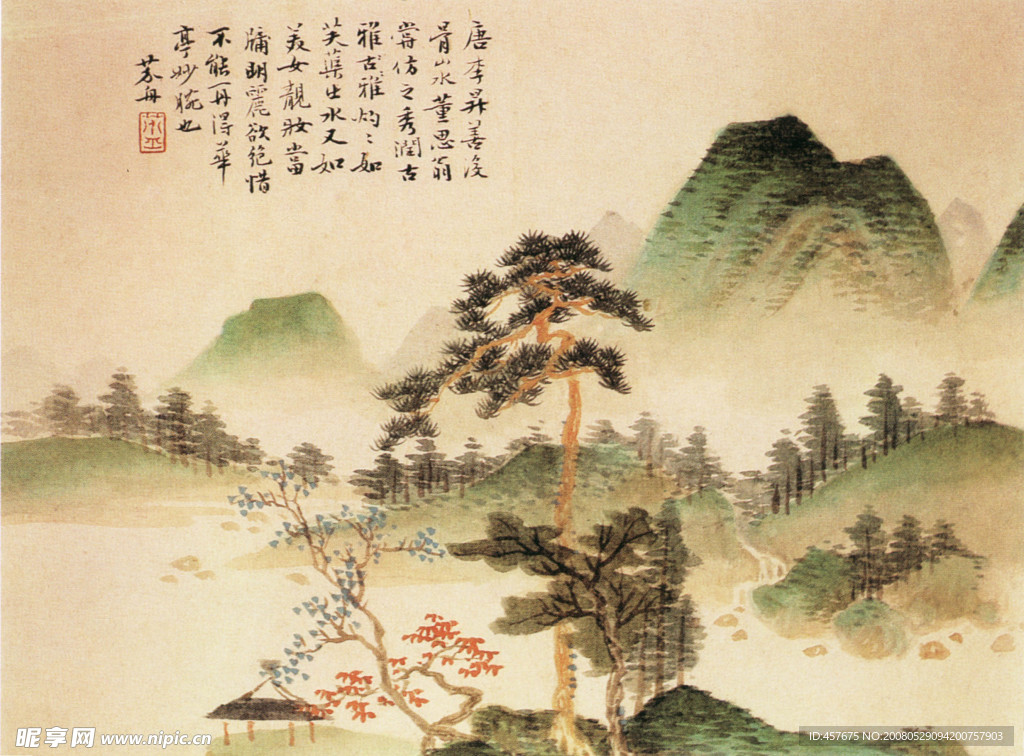 唐李昇善没
骨山水董思翁
嘗仿之秀潤古
雅古雅灼灼如
芙蕖出水又如
美女靚妝當
牖明麗欲絶惜
不能再得華
亭妙腕也
昵享网 www.nipic.cn
ID:457675 NO:20080529094200757903